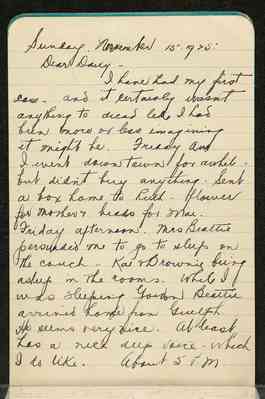 Sunday. November 15 1925.
Dear Davy -
I have had my first
class - and it certainly wasn't
anything to dread like I had
been more or less imagining
it might be. Friday Aud
I went downtown for awhile -
but didn't buy anything. Sent
a box home to Ruth. Flower
for Mother & beads for Mae.
Friday afternoon. Mrs Beattie
persuaded me to go to sleep on
the couch - Kae & Brownie being
asleep in the rooms. While I
was sleeping Gordon Beattie
arrived home from Guelph
He seems very nice. At least
has a nice deep voice - which
I do like. About 5 P.M